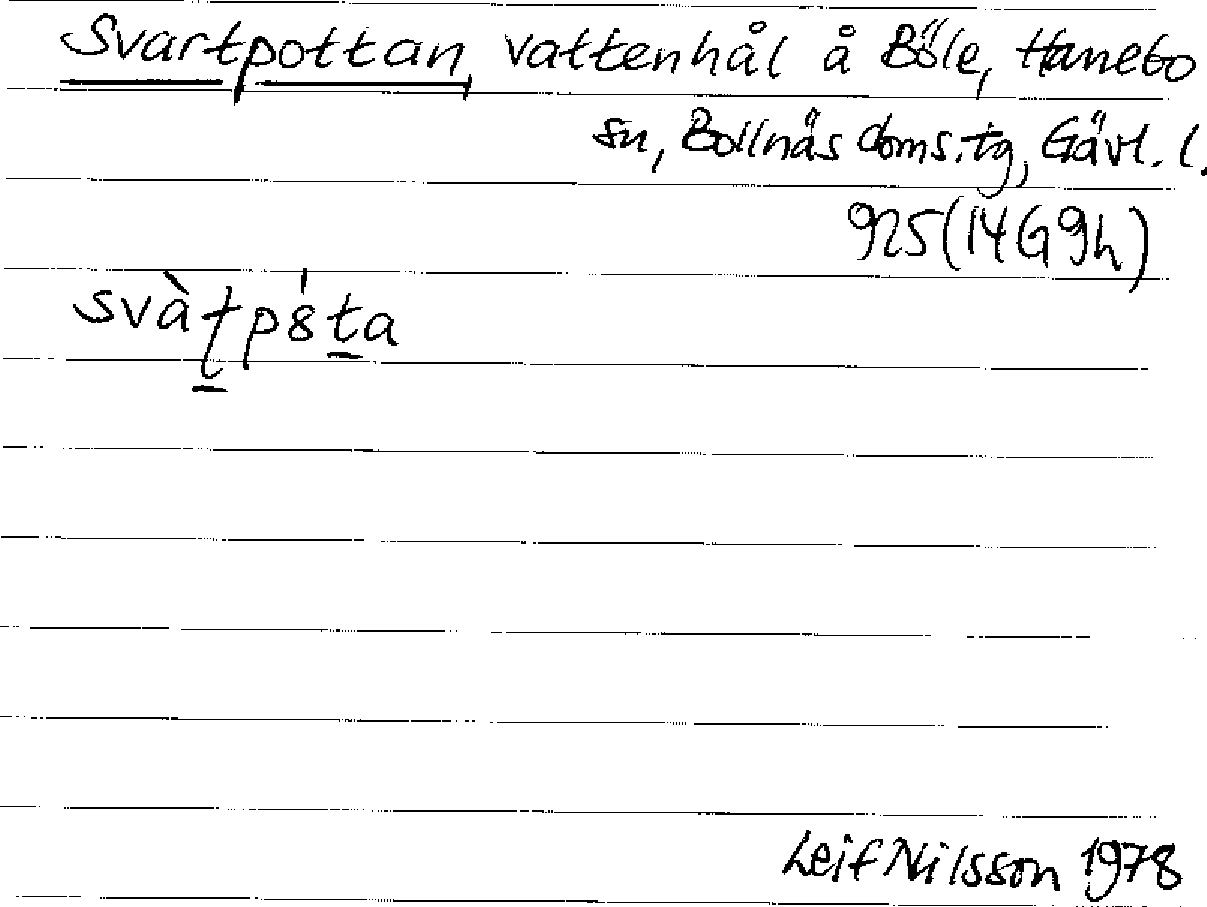 Svartpottan, vattenhål å Böle, Hanebo
sn, Bollnäs doms.tg, Gävl. l.
925 (14G9h)
svàʈp8́ta
Leif Nilsson 1978